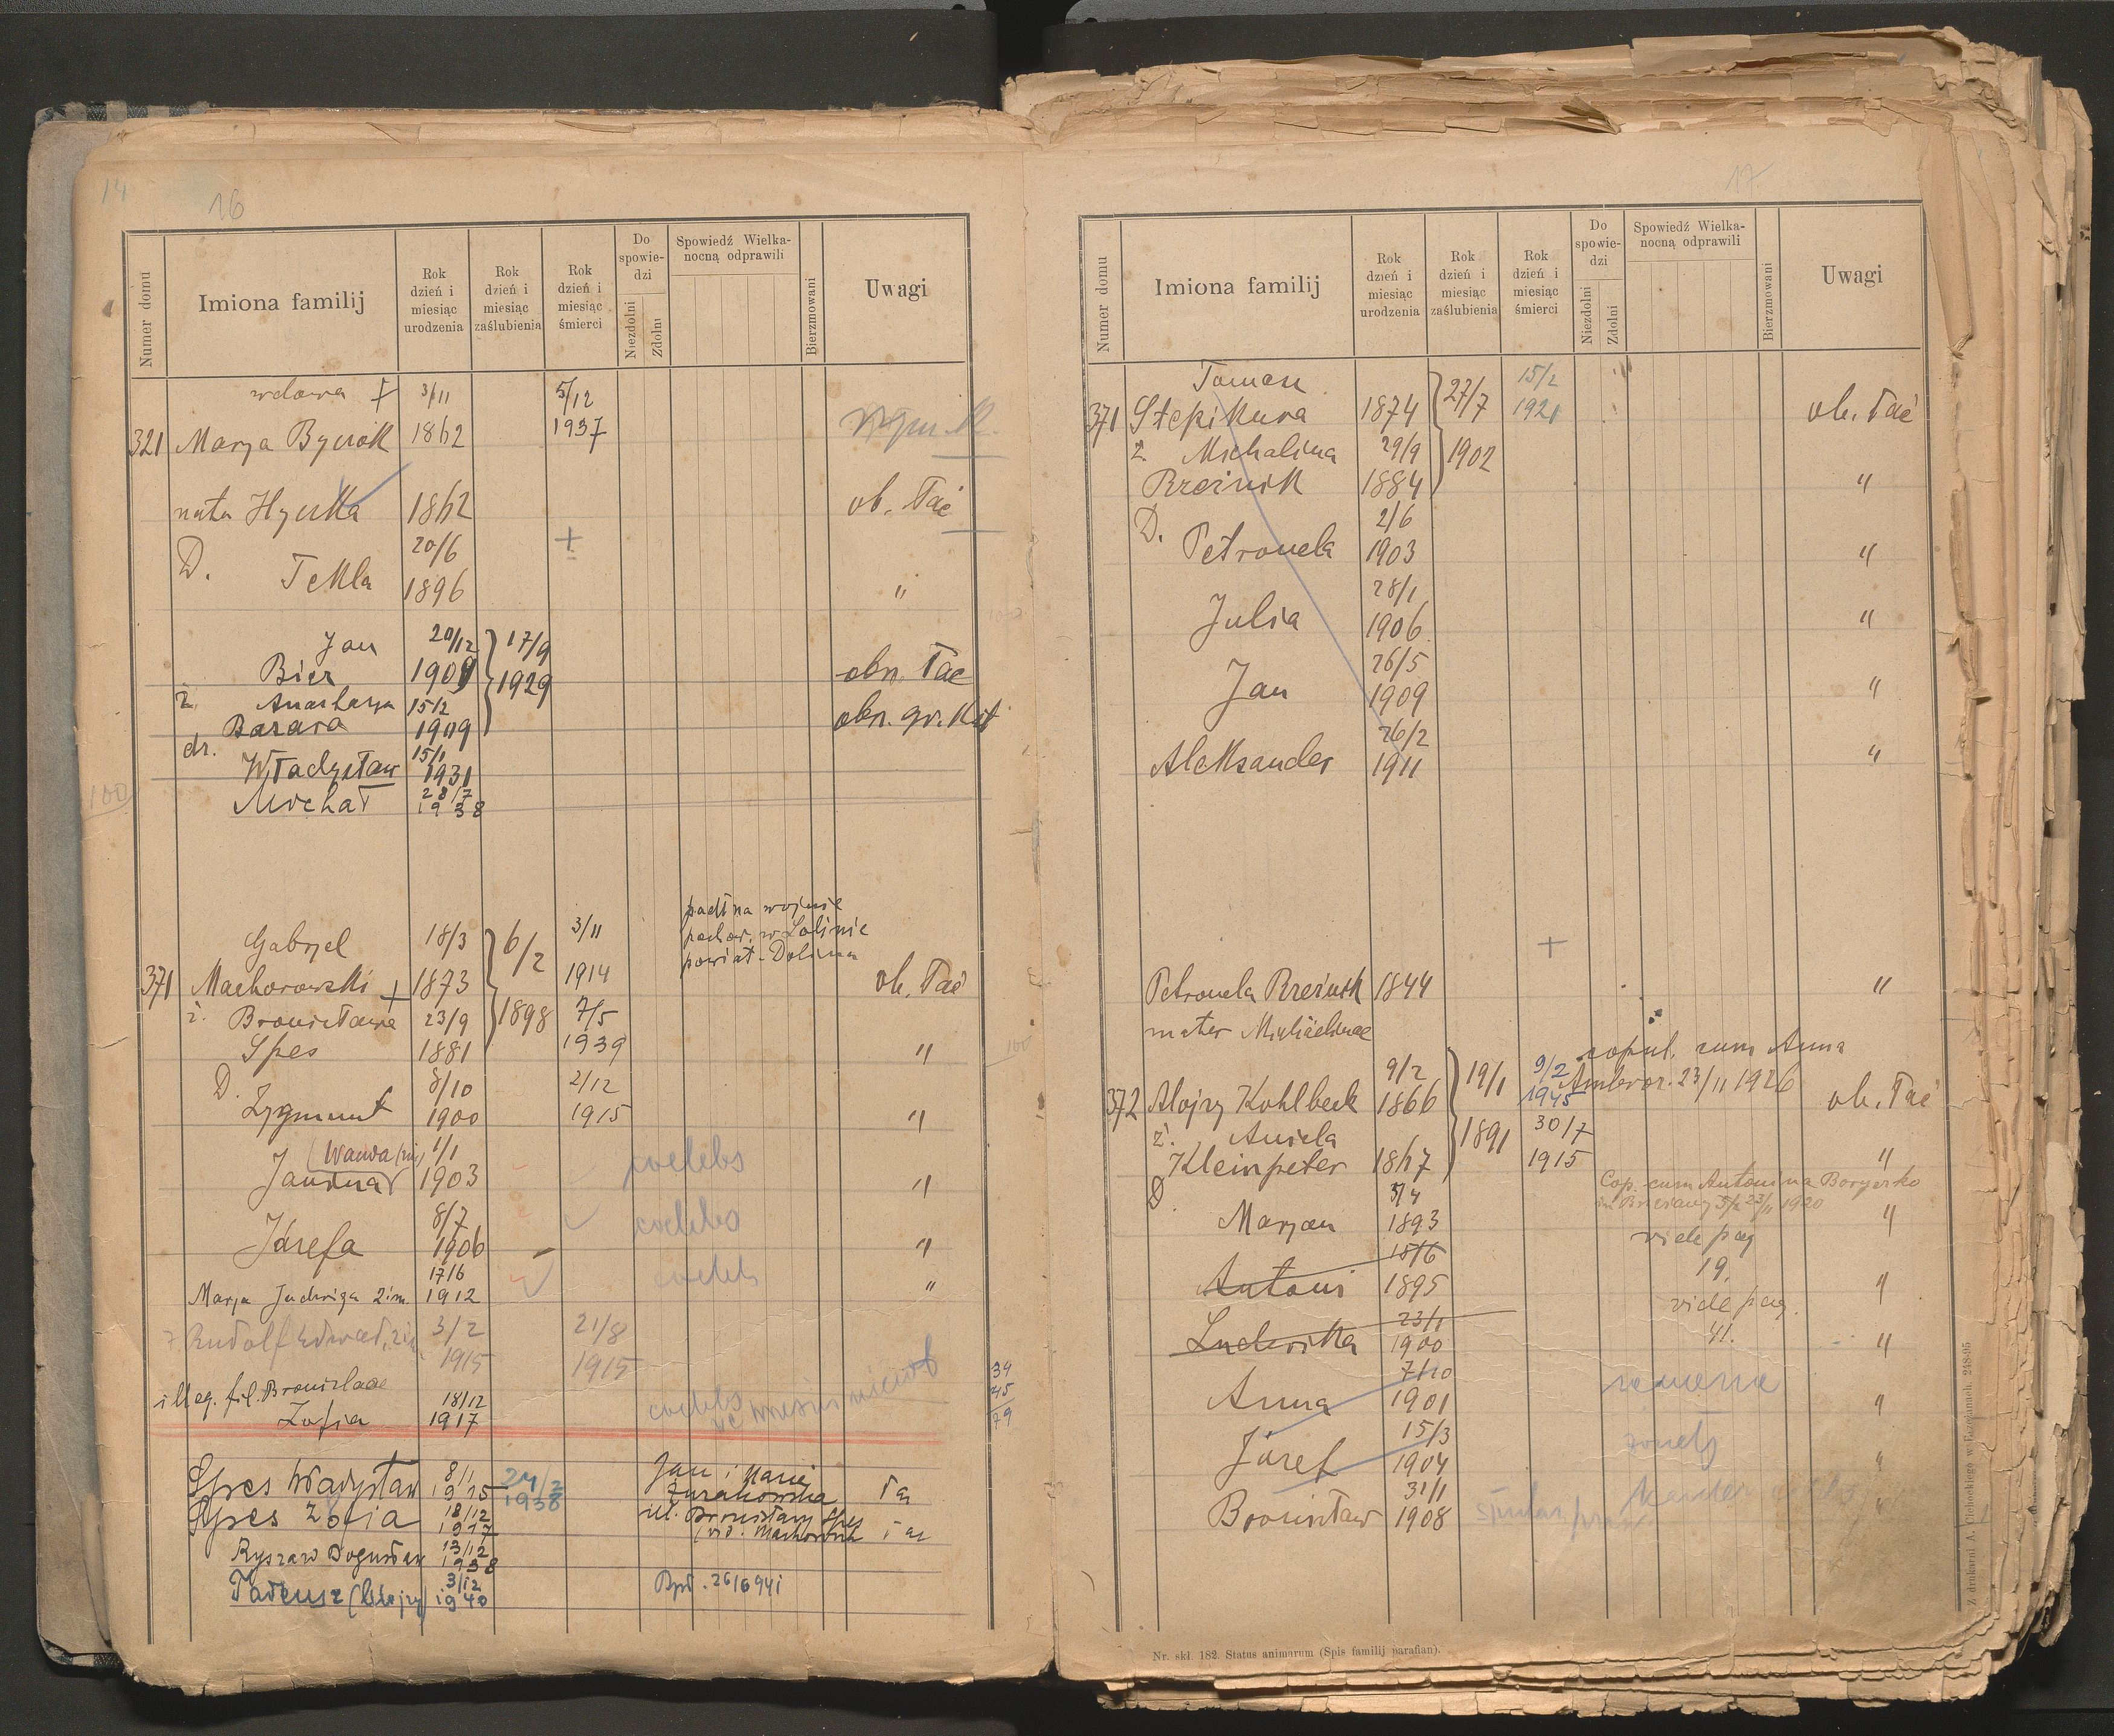 14
16
Numer domu
Imiona familij
Rok dzień i miesiąc urodzenia
Rok dzień i miesiąc zaślubienia
Rok dzień i miesiąc śmierci
Do spowiedzi
Niezdolni
Zdolni
Spowiedź Wielkanocną odprawili
Bierzmowani
Uwagi
wdowa + 3/11 5/12
321 Marya Byczok 1862 1937
nata Hyczka 1862 ob. łać
D. 20/6 +
Tekla 1896 "
Jan 20/12 17/9
Bier 1909 1929 obn. łać
ż. Anastazya 15/2
Barara 1909 obn. gr. kat
dr. 15/1
Władysław 1931
Michał 28/7 1938
100
padł na wojnie
Gabryel 18/3 6/2 3/11 pochow. w Lolinie
powiat-Dolina
371 Machorowski + 1873 1914 ob. łać
ż. Bronisława 23/9 1898 7/5
Spes 1881 1939 "
D. 8/10 2/12
Zygmunt 1900 1915 "
(Wanda 1/1 coelebs
1903 "
8/7 coelebs
Józefa 1906 "
17/6 coelebs
Marja Jadwiga 2 im. 1912 "
Rudolf Edward, 2 im. 3/2 1915 21/8 1915
illeg. fil. Bronislaae
18/12 coelebs
Zofia 1917
39
45
79
Spes Władysław 8/1 1915 24/2 1938 Jan i Maria Żurakowska łac
Spes Zofia 18/12 1917 ill. Bronisławy Spes łac
Ryszard Bogusław 13/12 1938
Tadeusz (Alojzy) 3/12 1940
17
Numer domu
Imiona familij
Rok dzień i miesiąc urodzenia
Rok dzień i miesiąc zaślubienia
Rok dzień i miesiąc śmierci
Do spowiedzi
Niezdolni
Zdolni
Spowiedź Wielkanocną odprawili
Bierzmowani
Uwagi
Tomasz 27/7 15/2
371 Stepikura 1874 1921 ob. łać
ż. Michalina 29/9 1902
Brzeźnik 1884 "
D. 2/6
Petronela 1903 "
28/1
Julia 1906 "
26/5
Jan 1909 "
26/2
Aleksander 1911 "
+
Petronela Brzeźnik 1844 "
mater Michaelinae
copul. cum Anna
9/2 19/1 9/2 23/11 1926
372 Alojzy Kohlbeck 1866 1945 ob. łać
ż. Aniela 1891 30/7
Kleinpeter 1867 1915 "
D 3/4 Cop. cum Antonina
Marjan 1893 1920 "
15/6 vide pag
Antoni 1895 19. "
23/1 vide pag.
Ludwika 1900 41. "
7/10
Anna 1901 "
15/3
Józef 1904 "
31/1
Bronisław 1908 "
Nr. skł. 182. Status animarum (Spis familij parafian).
Z drukarni A. Cichockiego w Brzeżanach. 248-95